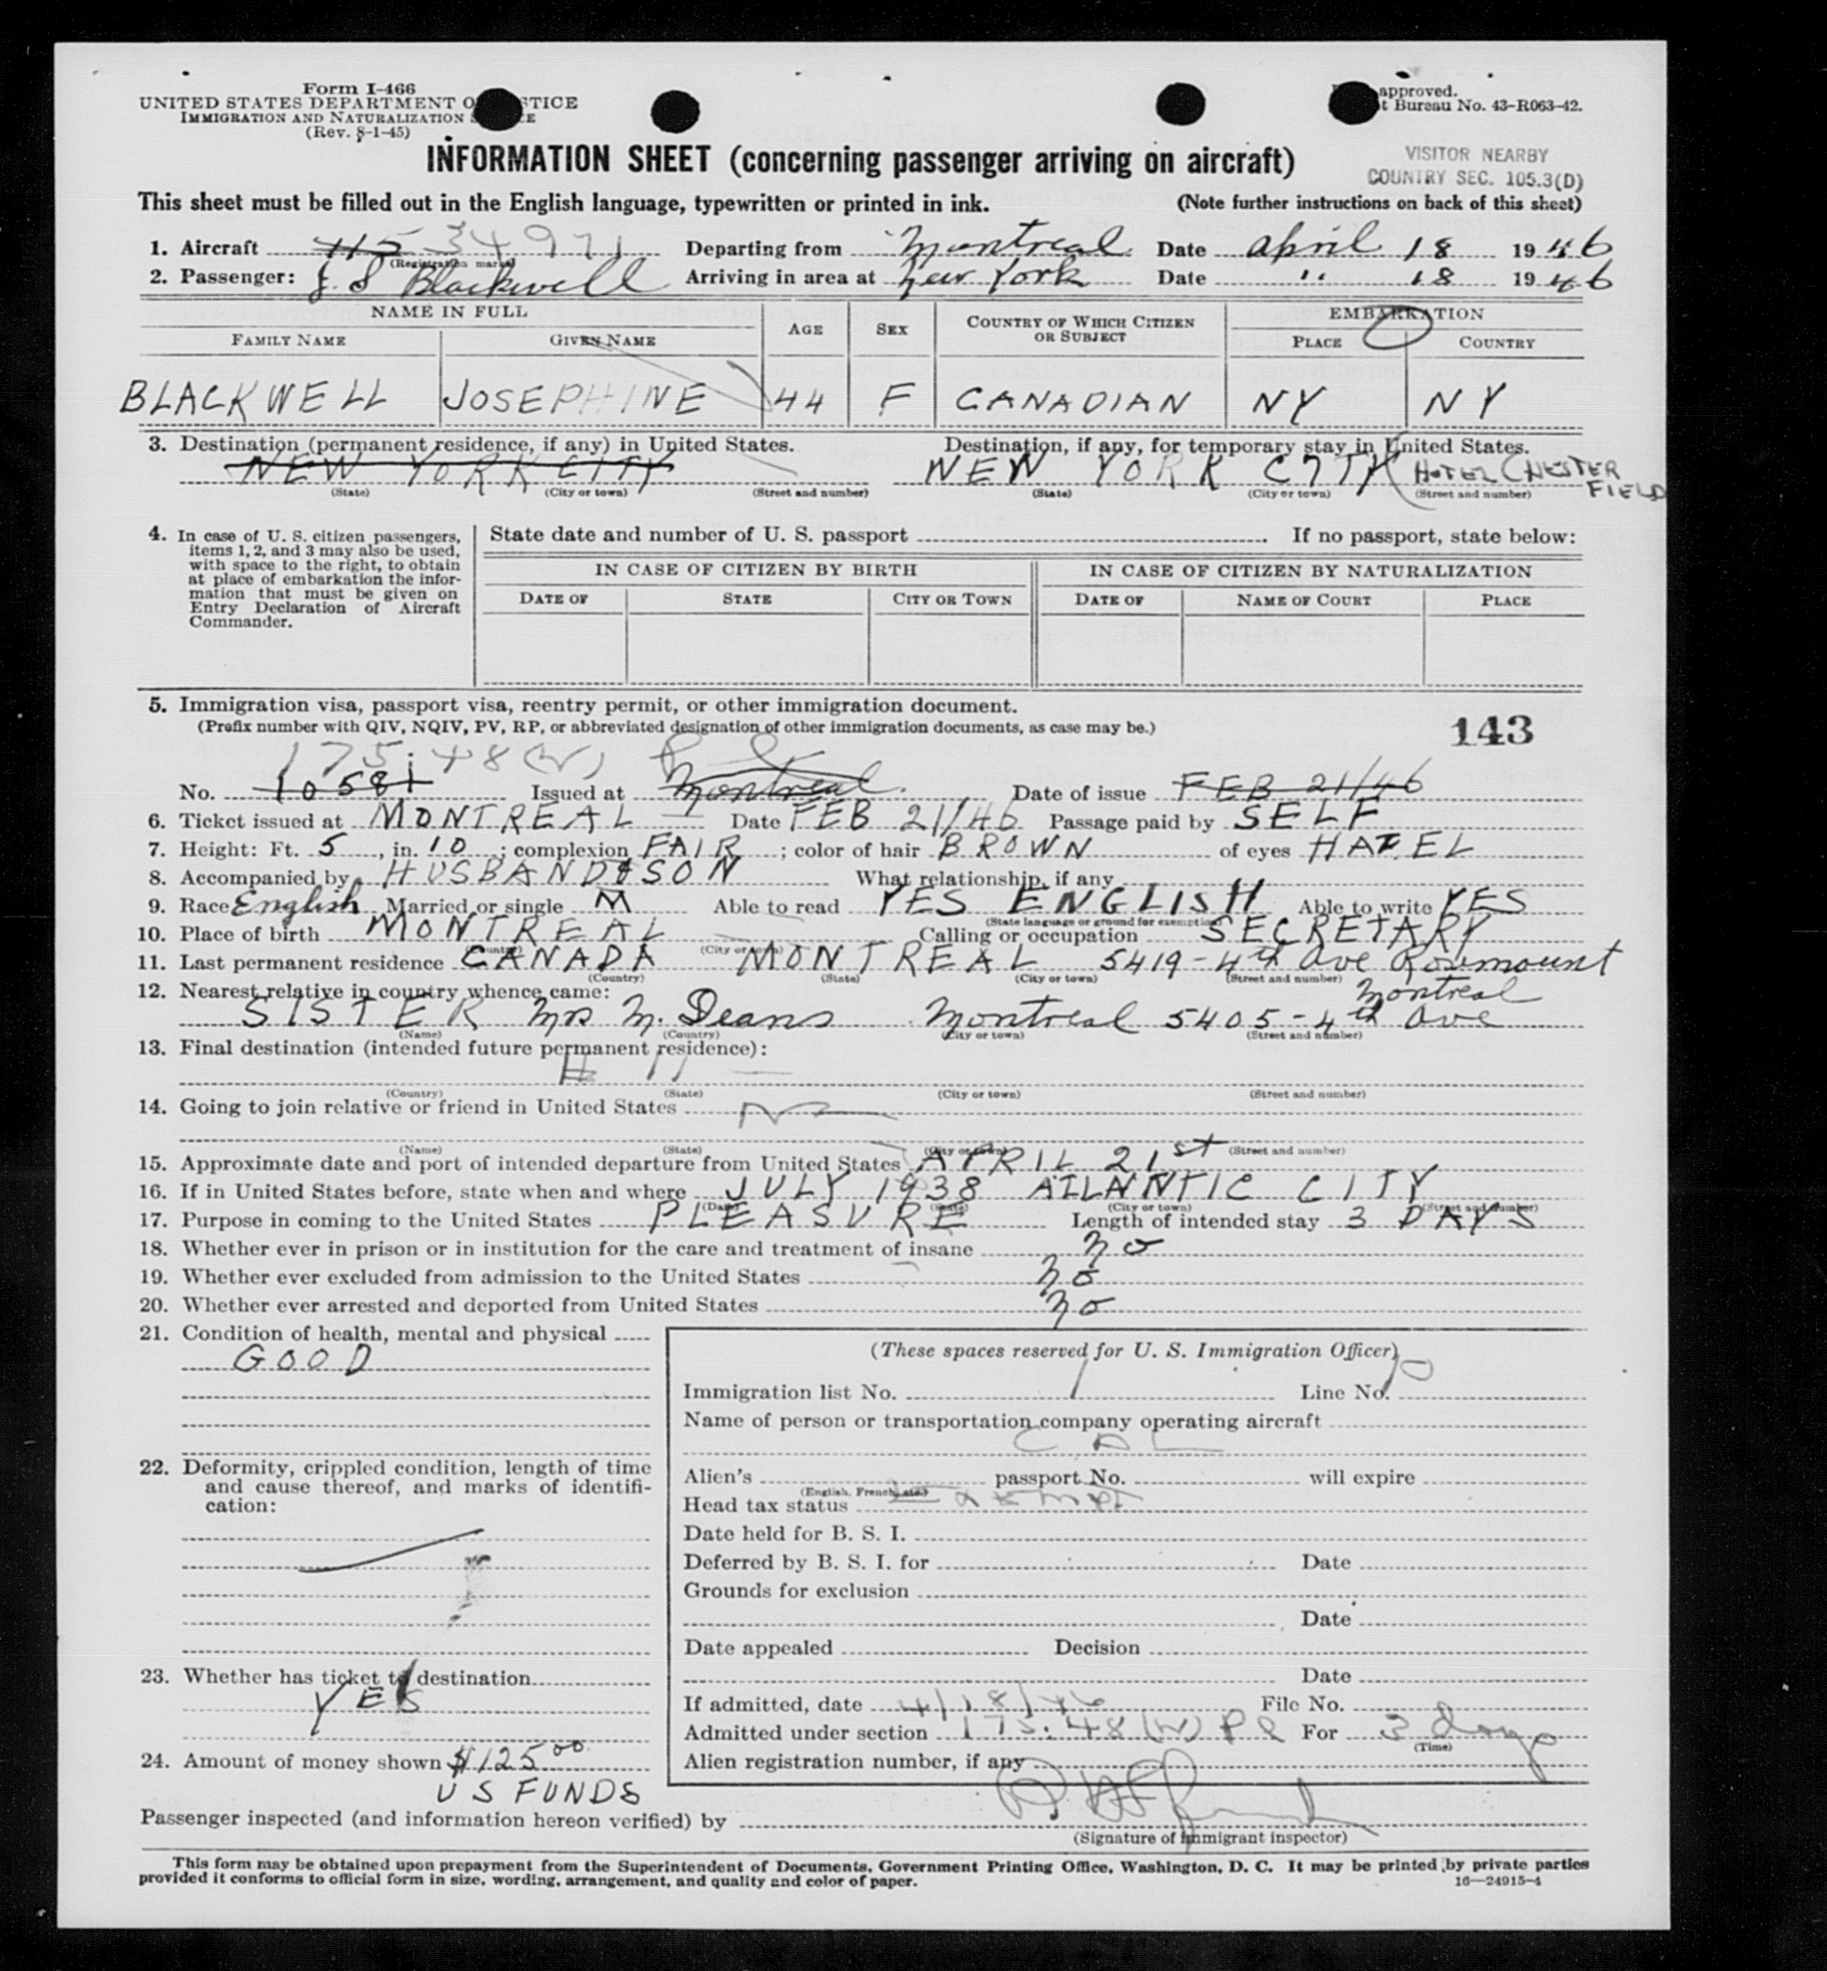 Form I-466
UNITED STATES DEPARTMENT O STICE
IMMIGRATION AND NATURALIZATION S E
(Rev. 8-1-45)
approved.
t Bureau No. 43-R063-42.
INFORMATION SHEET (concerning passenger arriving on aircraft)
VISITOR NEARBY
COUNTRY SEC. 105.3(D)
This sheet must be filled out in the English language, typewritten or printed in ink. (Note further instructions on back of this sheet)
1. Aircraft 34971 Departing from Montreal Date april 18 1946
(Registration marks)
2. Passenger: J. S Blackwell Arriving in area at New York Date " 18 1946
NAME IN FULL AGE SEX COUNTRY OF WHICH CITIZEN OR SUBJECT EMBARKATION
FAMILY NAME GIVEN NAME PLACE COUNTRY
BLACKWELL JOSEPHINE 44 F CANADIAN NY NY
3. Destination (permanent residence, if any) in United States. Destination, if any, for temporary stay in United States.
NEW YORK CITY NEW YORK CITY HOTEL CHESTER
FIELD
(State) (City or town) (Street and number) (State) (City or town) (Street and number)
4. In case of U. S. citizen passengers, items 1, 2, and 3 may also be used, with space to the right, to obtain at place of embarkation the information that must be given on Entry Declaration of Aircraft Commander.
State date and number of U. S. passport If no passport, state below:
IN CASE OF CITIZEN BY BIRTH IN CASE OF CITIZEN BY NATURALIZATION
DATE OF STATE CITY OR TOWN DATE OF NAME OF COURT PLACE
5. Immigration visa, passport visa, reentry permit, or other immigration document.
(Prefix number with QIV, NQIV, PV, RP, or abbreviated designation of other immigration documents, as case may be.)
143
175.48(W)
No. 10581 Issued at Montreal. Date of issue FEB 21/46
6. Ticket issued at MONTREAL Date FEB 21/46 Passage paid by SELF
7. Height: Ft. 5, in. 10; complexion FAIR; color of hair BROWN of eyes HAZEL
8. Accompanied by HUSBAND & SON What relationship, if any
9. Race English Married or single M Able to read YES ENGLISH Able to write YES
(State language or ground for exemption)
10. Place of birth MONTREAL Calling or occupation SECRETARY
(Country) (City or town)
11. Last permanent residence CANADA MONTREAL 5419-4th Ave Rosemount
(Country) (State) (City or town) (Street and number)
12. Nearest relative in country whence came: Montreal
SISTER Mrs M. Deans Montreal 5405-4th Ave
(Name) (Country) (City or town) (Street and number)
13. Final destination (intended future permanent residence):
# 11
(Country) (State) (City or town) (Street and number)
14. Going to join relative or friend in United States No
(Name) (State) (City or town) (Street and number)
15. Approximate date and port of intended departure from United States APRIL 21st
16. If in United States before, state when and where JULY 1938 ATLANTIC CITY
(Date) (State) (City or town) (Street and number)
17. Purpose in coming to the United States PLEASURE Length of intended stay 3 DAYS
18. Whether ever in prison or in institution for the care and treatment of insane no
19. Whether ever excluded from admission to the United States no
20. Whether ever arrested and deported from United States no
21. Condition of health, mental and physical
GOOD
22. Deformity, crippled condition, length of time and cause thereof, and marks of identification:
23. Whether has ticket to destination
YES
24. Amount of money shown $125.00
US FUNDS
(These spaces reserved for U. S. Immigration Officer)
Immigration list No. 1 Line No. 10
Name of person or transportation company operating aircraft
CAL
Alien's passport No. will expire
(English, French, etc.)
Head tax status Exempt
Date held for B. S. I.
Deferred by B. S. I. for Date
Grounds for exclusion
Date
Date appealed Decision
Date
If admitted, date 4/18/46 File No.
Admitted under section 175.48(W) PR For 3 days
(Time)
Alien registration number, if any
Passenger inspected (and information hereon verified) by
(Signature of immigrant inspector)
This form may be obtained upon prepayment from the Superintendent of Documents, Government Printing Office, Washington, D. C. It may be printed by private parties
provided it conforms to official form in size, wording, arrangement, and quality and color of paper.
16—24915-4